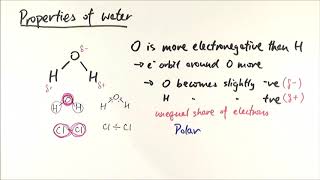 Properties of water
O is more electronegative than H
→ e⁻ orbit around O more
→ O becomes slightly -ve (δ-)
H " " +ve (δ+)
unequal share of electrons
Polar
O δ-
H H
δ+ δ+
H O H
H O H
Cl Cl
Cl ÷ Cl